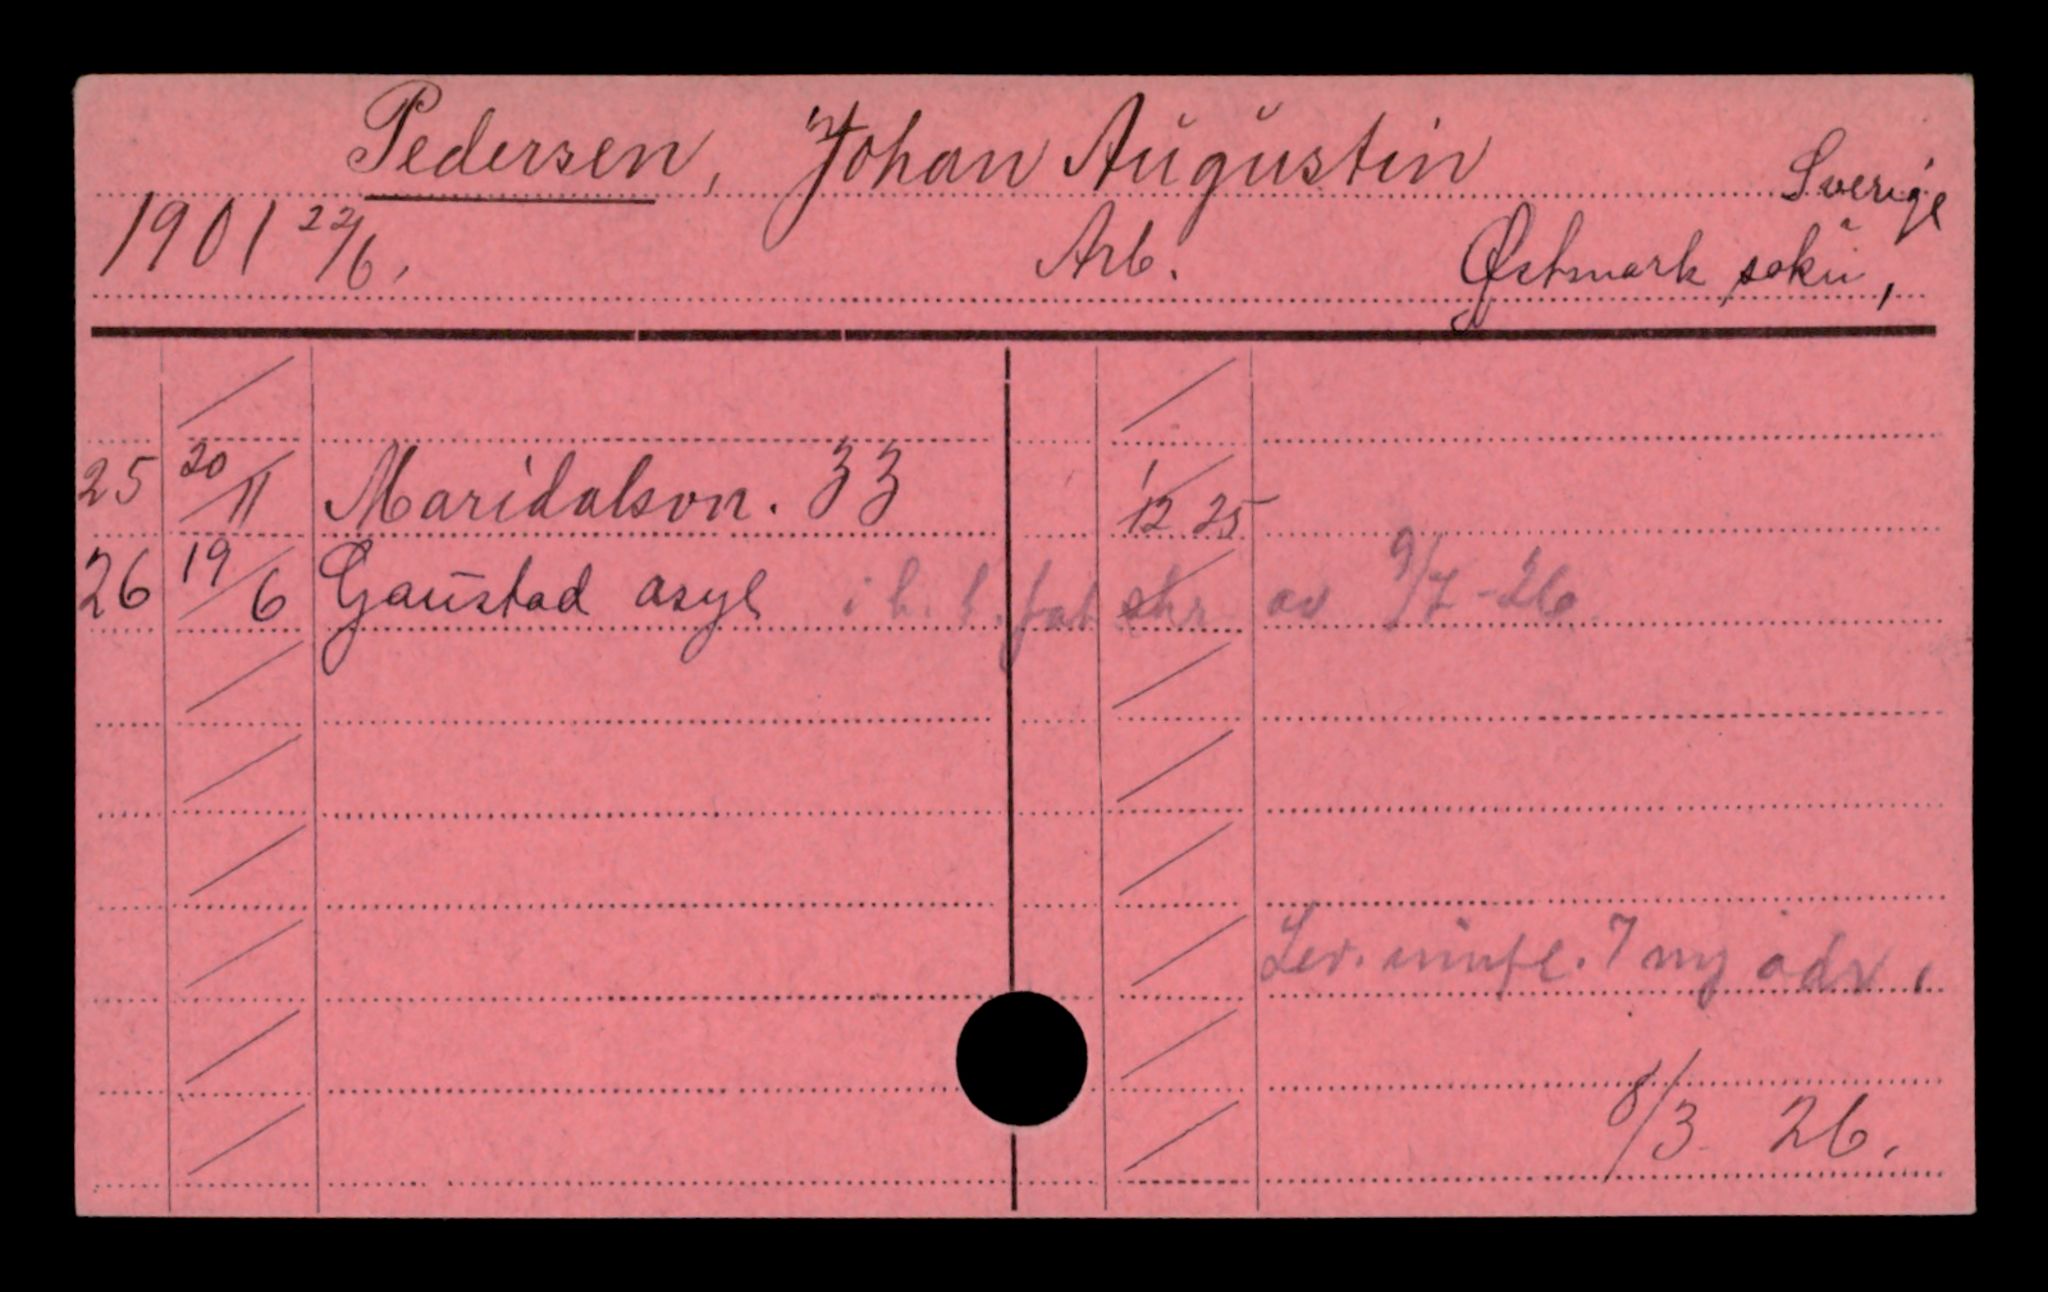 Pedersen, Johan Augustin
Sverige
1901 22/6. Arb. Østmark sokn,
25 20/11 Maridalsvn. 33 1/12 25
26 19/6 Gaustad asyl i h. t. fat skr av 9/7-26
Lev. 7 ny adr.
8/3 26.